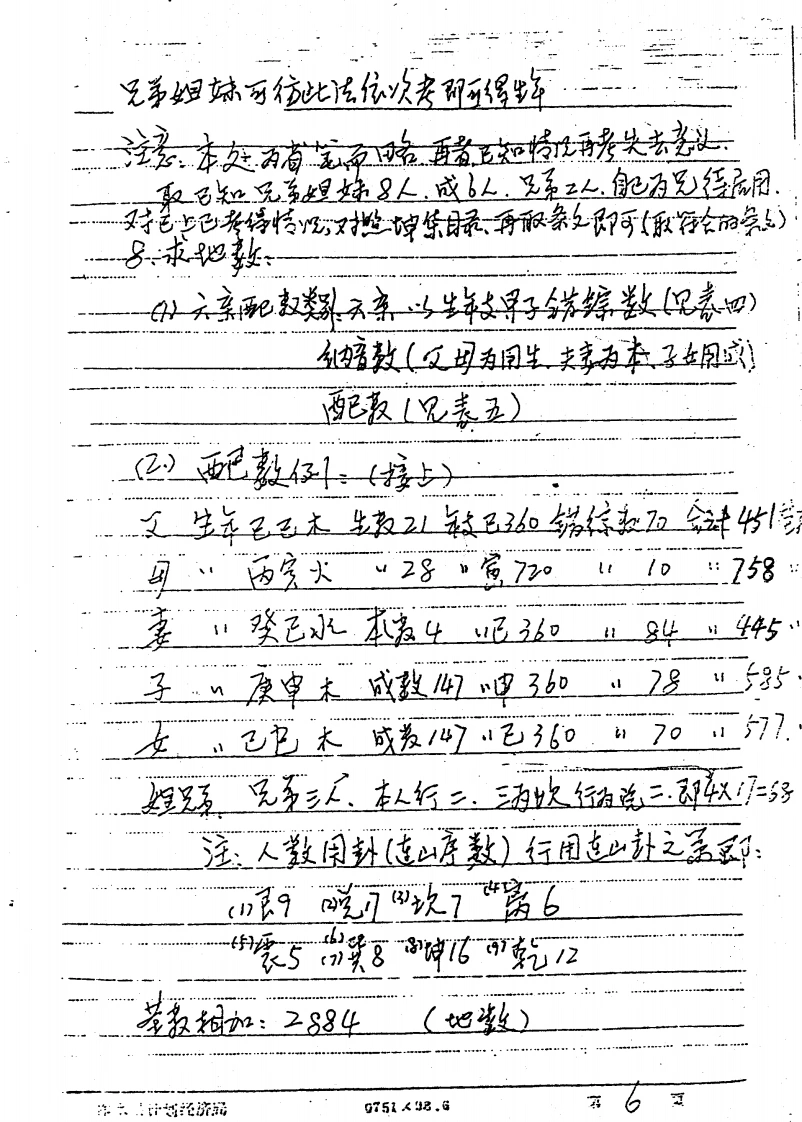 兄弟姐妹可仿此法依次考即可得生年
注意:本处为省笔而略,再者已知情况再考失去意义.
取已知兄弟姐妹8人,成6人.兄弟二人,自己为兄待启用.
对已上已考得情况,对照坤集目录,再取条文即可(取符合的条文)
8.求地数:
(1)六亲配数类别:六亲,以生年支畀子错综数(见表四)
纳音数(父母为用生,夫妻为本,子女用成)
配数(见表五)
(2.)配数例:(接上)
父 生年己巳木 生数21 年支巳360 错综数70 合计451
母 〃 丙寅火 〃28 〃寅720 〃 10 〃 758
妻 〃 癸巳水 本数4 〃巳360 〃 84 〃 445
子 〃 庚申木 成数147 〃申360 〃 78 〃 585
女 〃 己巳木 成数147 〃巳360 〃 70 〃 577
兄弟三人,本人行二,三为坎行为兑二.即4×17=68
注:人数用卦(连山序数)行用连山卦之策即:
(1)艮9 (2)兑17 (3)坎7 (4) 离6
(5)震5 (6) (7)巽8 (8)坤16 (9)乾12
基数相加:2884 (地数)
计划经济局 0751×98.6 第 6 页